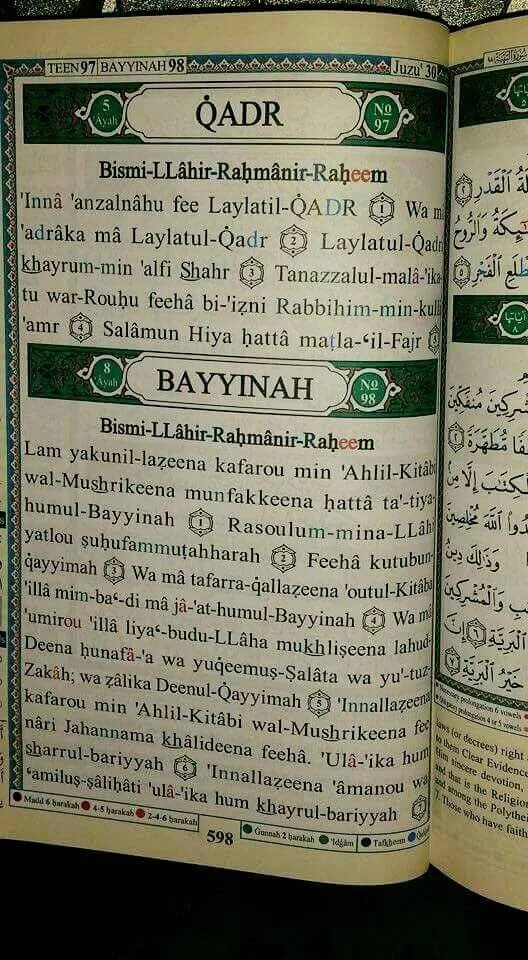 TEEN97|BAYYINAH 98
Juzu' 30
5
'Ayah
Q̇ADR
No
97
Bismi-LLâhir-Raḥmânir-Raḥeem
'Innâ 'anzalnâhu fee Laylatil-Q̇ADR (1) Wa mâ
'adrâka mâ Laylatul-Q̇adr (2) Laylatul-Q̇adri
khayrum-min 'alfi Shahr (3) Tanazzalul-malâ-'ika-
tu war-Rouḥu feehâ bi-'iẓni Rabbihim-min-kulli
'amr (4) Salâmun Hiya ḥattâ maṭla-ʻil-Fajr (5)
8
'Ayah
BAYYINAH
No
98
Bismi-LLâhir-Raḥmânir-Raḥeem
Lam yakunil-laẓeena kafarou min 'Ahlil-Kitâbi
wal-Mushrikeena munfakkeena ḥattâ ta'-tiya-
humul-Bayyinah (1) Rasoulum-mina-LLâhi
yatlou ṣuḥufammuṭahharah (2) Feehâ kutubun-
q̇ayyimah (3) Wa mâ tafarra-q̇allaẓeena 'outul-Kitâba
'illâ mim-baʻ-di mâ jâ-'at-humul-Bayyinah (4) Wa mâ
'umirou 'illâ liyaʻ-budu-LLâha mukhliṣeena lahud-
Deena ḥunafâ-'a wa yuq̇eemuṣ-Ṣalâta wa yu'-tuz-
Zakâh; wa ẓâlika Deenul-Q̇ayyimah (5) 'Innallaẓeena
kafarou min 'Ahlil-Kitâbi wal-Mushrikeena fee
nâri Jahannama khâlideena feehâ. 'Ulâ-'ika hum
sharrul-bariyyah (6) 'Innallaẓeena 'âmanou wa
ʻamiluṣ-ṣâliḥâti 'ulâ-'ika hum khayrul-bariyyah (7)
Madd 6 ḥarakah 4-5 ḥarakah 2-4-6 ḥarakah
598
Gunnah 2 ḥarakah 'Idġâm Tafkheem
ةُ الْقَدْرِ ٢
ئِكَةُ وَالرُّوحُ
طْلَعِ الْفَجْرِ ٥
شْرِكِينَ مُنفَكِّينَ
فًا مُّطَهَّرَةً ٢
لْكِتَابَ إِلَّا مِن
دُوا اللَّهَ مُخْلِصِينَ
وَذَٰلِكَ دِينُ
بِ وَالْمُشْرِكِينَ
الْبَرِيَّةِ ٦ إِنَّ
خَيْرُ الْبَرِيَّةِ ٧
Necessary prolongation 6 vowels
Obligatory prolongation 4 or 5 vowels
laws (or decrees) right
to them Clear Evidence
Him sincere devotion,
And that is the Religion
and among the Polythei
7. Those who have faith